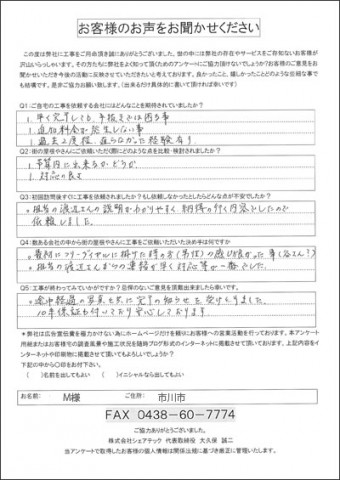 お客様のお声をお聞かせください
この度は弊社に工事をご用命頂き誠にありがとうございました。世の中には弊社の存在やサービスをご存知ないお客様が
沢山いらっしゃいます。その方たちも弊社をよく知って頂くためのアンケートにご協力頂けないでしょうか?お客様のご意見をお
聞かせいただき今後の活動に反映させていただきたいと考えております。良かったこと、嬉しかったことどのような些細な事で
も結構です。是非ご協力お願い致します。(出来るだけ具体的に書いて頂ければ幸いです)
Q1:ご自宅の工事を依頼する会社にはどんなことを期待されていましたか?
1. 早く完了しても、手抜きでは困る事
1. 追加料金が発生しない事
1. 過去2度程、直らなかった経験有り
Q2:街の屋根やさんにご依頼いただく際にどのような点を比較・検討されましたか?
1. 予算内に出来るかどうか
1. 対応の良さ
Q3:初回訪問後すぐに工事を依頼されましたか?もし依頼しなかったとしたらどんな点が不安でしたか?
○担当の渡辺さんの説明がわかりやすく納得の行く内容でしたので
依頼しました。
Q4:数ある会社の中から街の屋根やさんに工事をご依頼いただいた決め手は何ですか
○最初にフリーダイヤルに掛けた時の方(男性)の感じが良かった
○担当の渡辺さんからの連絡が早く対応等が一番でした。
Q5:工事が終わってみていかがですか?忌憚のないご意見を頂戴出来ましたら幸いです。
○途中経過の写真と共に完了の知らせを受けとりました。
10年保証も付いており安心しております。
*弊社は広告宣伝費を極力かけない為にホームページだけを頼りにお客様への営業活動を行っております。本アンケート
用紙またはお客様宅の調査風景や施工状況を随時ブログ形式のインターネットに掲載させて頂いております。上記内容をイ
ンターネットや印刷物に掲載させて頂いてもよろしいでしょうか?
下記の中から〇印を下さい
(　)名前を出してもよい　(　)イニシャルなら出してもよい
お名前: M様 ご住所: 市川市
FAX 0438-60-7774
ご協力ありがとうございました。
株式会社シェアテック 代表取締役 大久保 誠二
当アンケートで取得したお客様の個人情報は関係法規に基づき厳正に管理いたします。